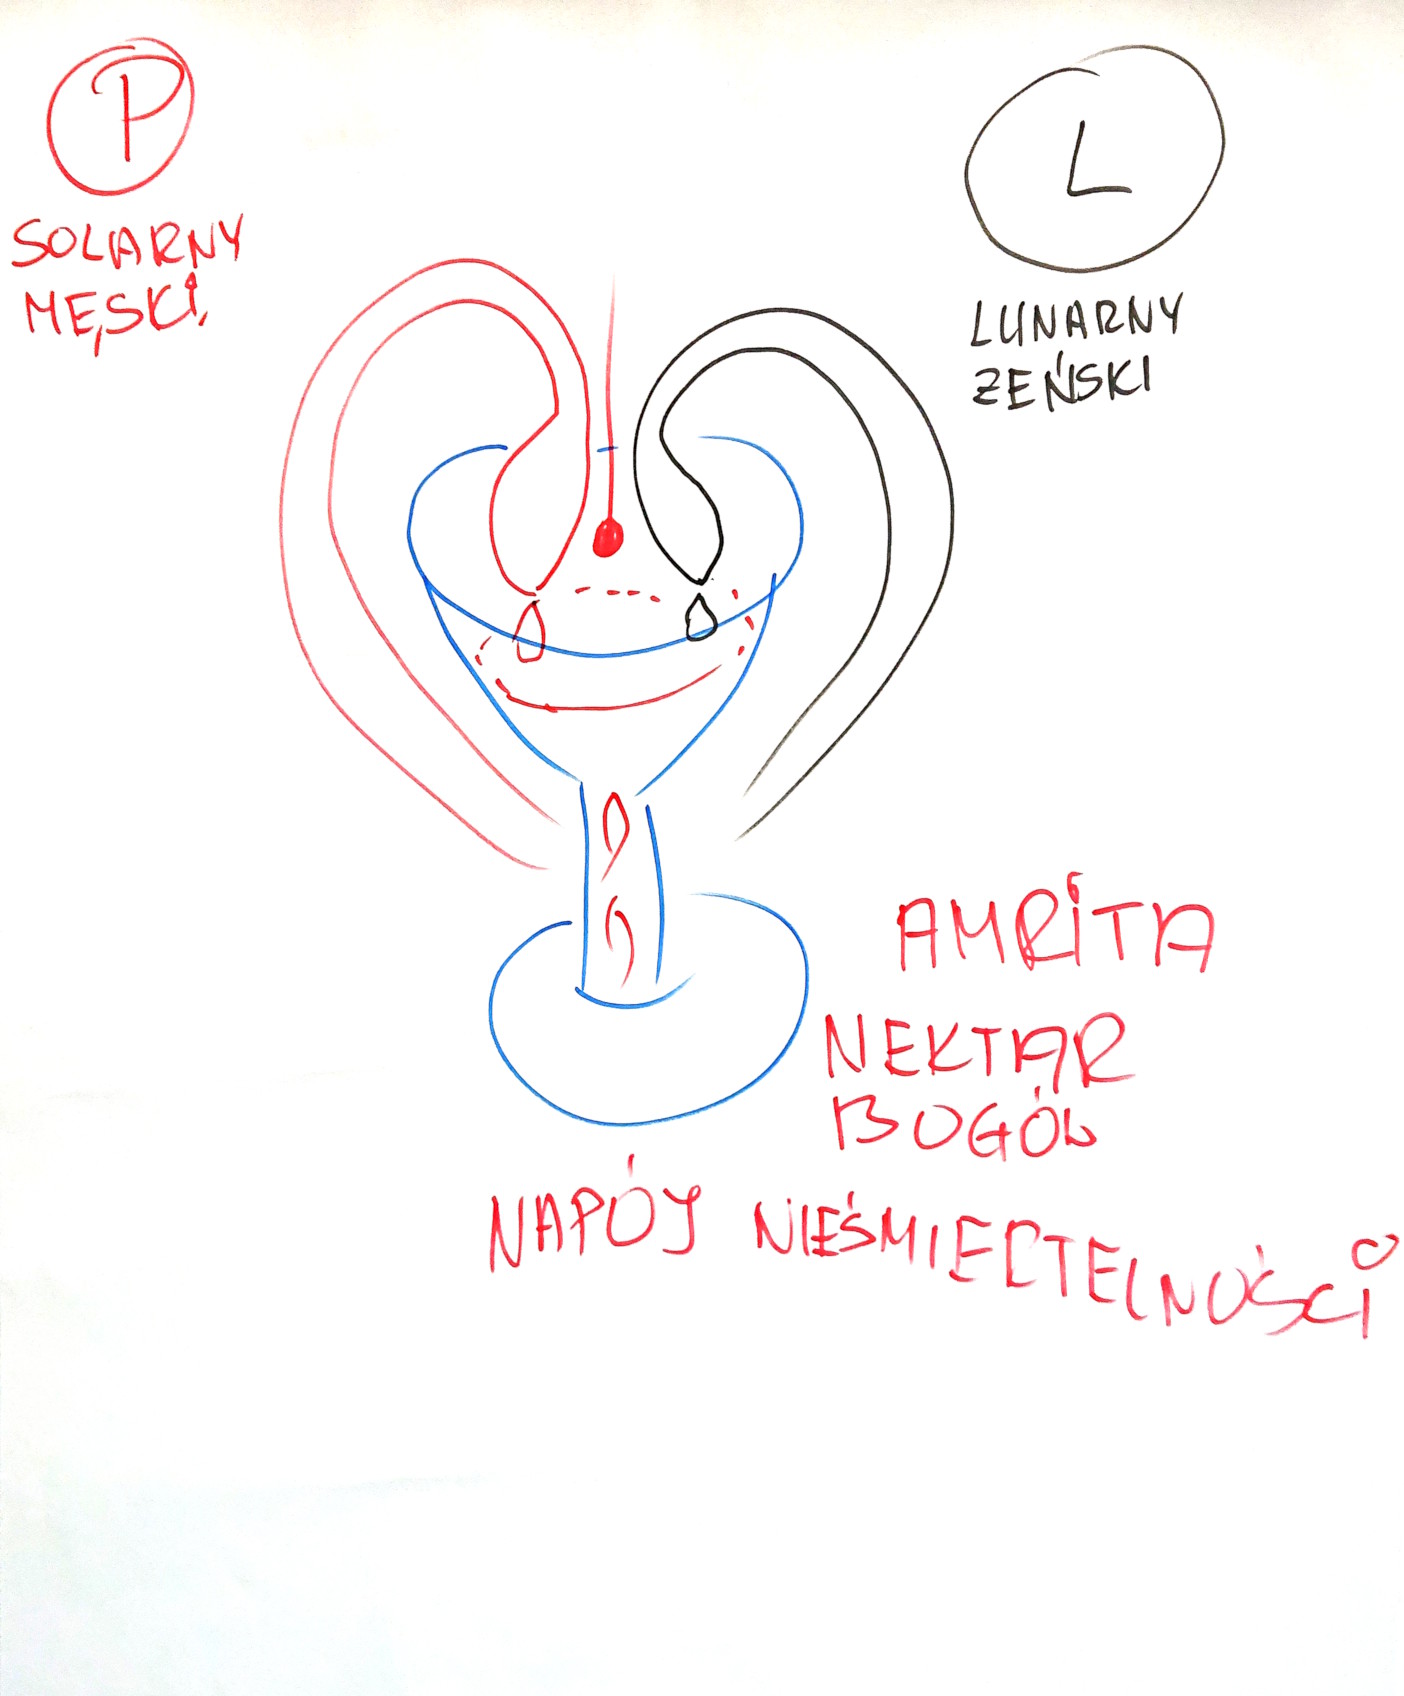 P
SOLARNY
MĘSKI,
L
LUNARNY
ZEŃSKI
AMRITA
NEKTAR
BOGÓW
NAPÓJ NIEŚMIERTELNOŚCI